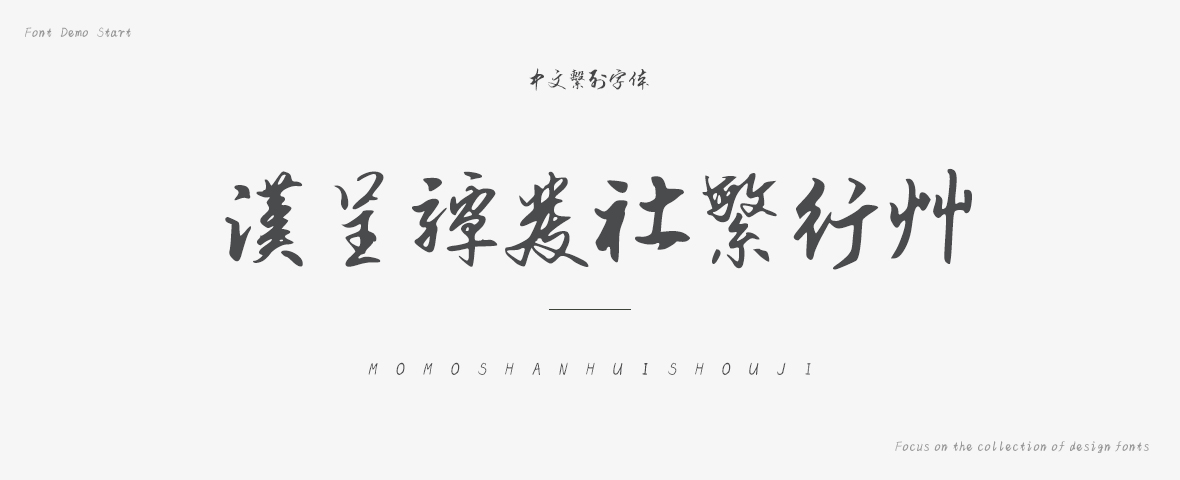 Font Demo Start
中文繫列字体
漢呈譚叢社繁行艸
MOMOSHANHUISHOUJI
Focus on the collection of design fonts